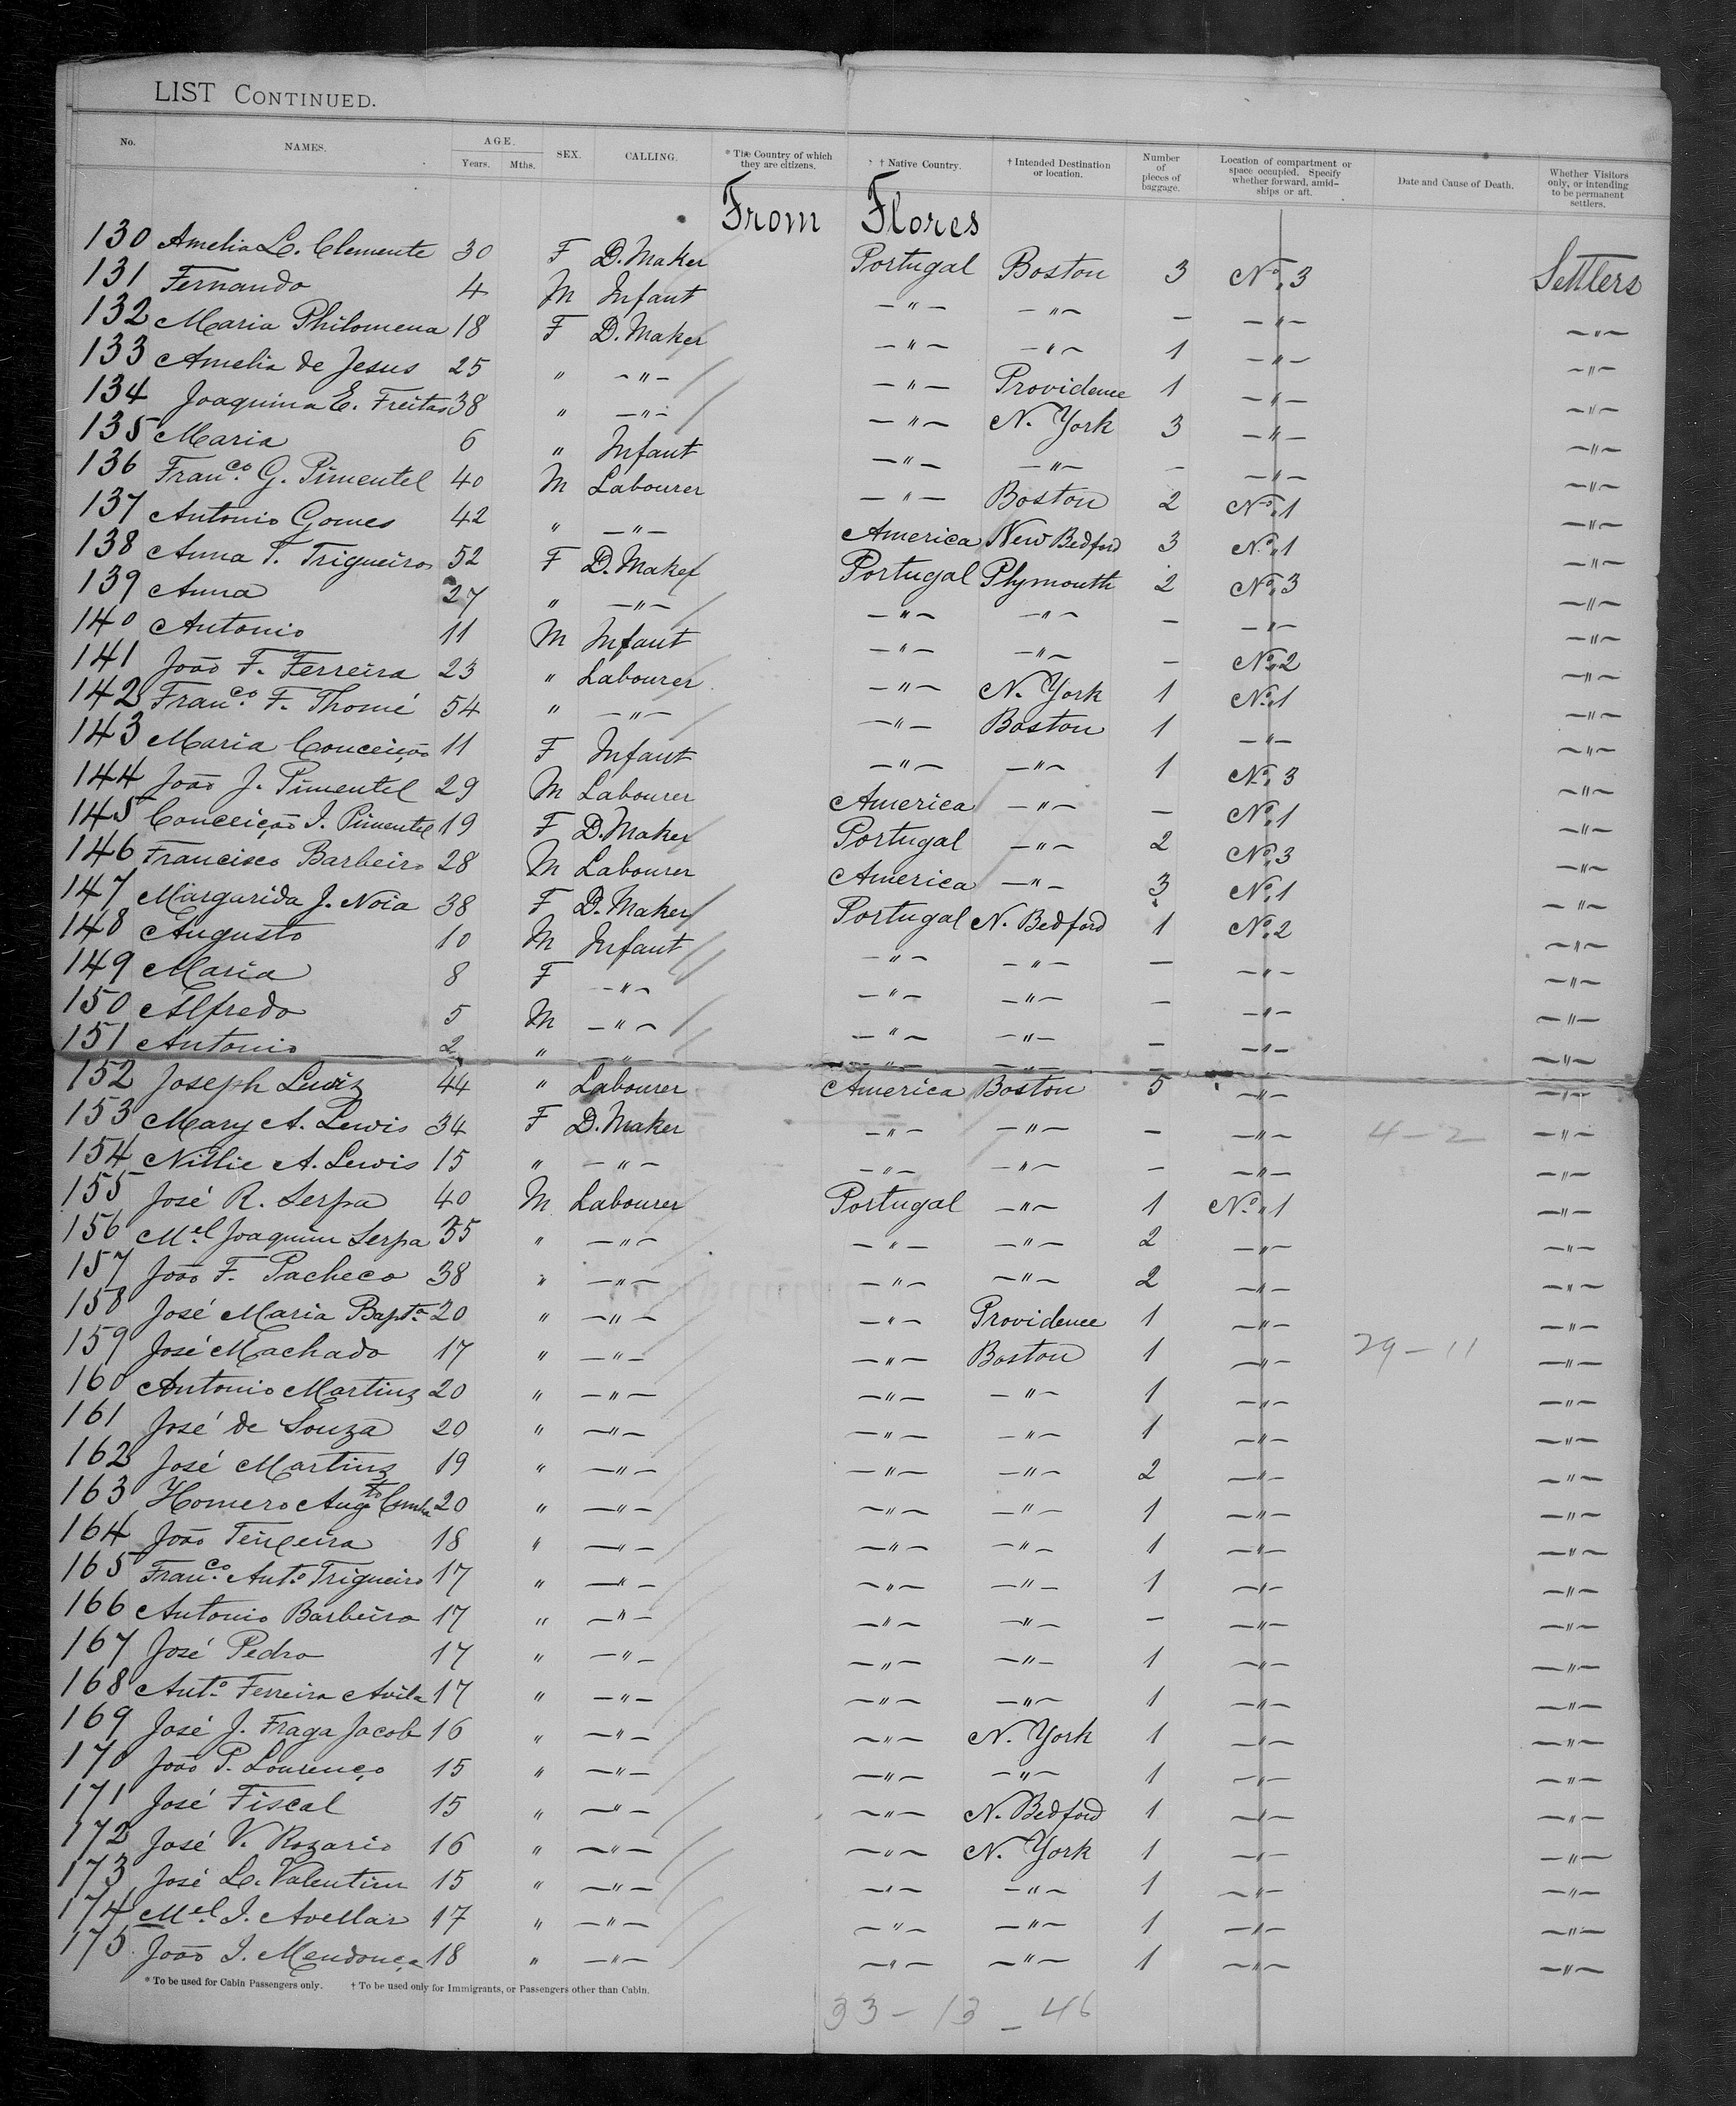 LIST CONTINUED.
No. NAMES. AGE. Years. Mths. SEX. CALLING. * The Country of which they are citizens. † Native Country. † Intended Destination or location. Number of pieces of baggage. Location of compartment or space occupied. Specify whether forward, amidships or aft. Date and Cause of Death. Whether Visitors only, or intending to be permanent settlers.
From Flores
130 Amelia L. Clemente 30 F D. Maker Portugal Boston 3 No. 3 Settlers
131 Fernando 4 M Infant —"— —"— — —"— —"—
132 Maria Philomena 18 F D. Maker —"— —"— 1 —"— —"—
133 Amelia de Jesus 25 " —"— —"— Providence 1 —"— —"—
134 Joaquina E. Freitas 38 " —"— —"— N. York 3 —"— —"—
135 Maria 6 " Infant —"— —"— — —"— —"—
136 Franco. G. Pimentel 40 M Labourer —"— Boston 2 No. 1 —"—
137 Antonio Gomes 42 " —"— America New Bedford 3 No. 1 —"—
138 Anna T. Trigueiro 52 F D. Maker Portugal Plymouth 2 No. 3 —"—
139 Anna 27 " —"— —"— —"— — —"— —"—
140 Antonio 11 M Infant —"— —"— — No. 2 —"—
141 João F. Ferreira 23 " Labourer —"— N. York 1 No. 1 —"—
142 Franco. F. Thomé 54 " —"— —"— Boston 1 —"— —"—
143 Maria Conceição 11 F Infant —"— —"— 1 No. 3 —"—
144 João J. Pimentel 29 M Labourer America —"— — No. 1 —"—
145 Conceição I. Pimentel 19 F D. Maker Portugal —"— 2 No. 3 —"—
146 Francisco Barbeiro 28 M Labourer America —"— 3 No. 1 —"—
147 Margarida J. Noia 38 F D. Maker Portugal N. Bedford 1 No. 2 —"—
148 Augusto 10 M Infant —"— —"— — —"— —"—
149 Maria 8 F —"— —"— —"— — —"— —"—
150 Alfredo 5 M —"— —"— —"— — —"— —"—
151 Antonio 2 " —"— —"— —"— — —"— —"—
152 Joseph Lewis 44 " Labourer America Boston 5 —"— —"—
153 Mary A. Lewis 34 F D. Maker —"— —"— — —"— 4–2 —"—
154 Nillie A. Lewis 15 " —"— —"— —"— — —"— —"—
155 José R. Serpa 40 M Labourer Portugal —"— 1 No. 1 —"—
156 Mel. Joaquim Serpa 35 " —"— —"— —"— 2 —"— —"—
157 João F. Pacheco 38 " —"— —"— —"— 2 —"— —"—
158 José Maria Bapta. 20 " —"— —"— Providence 1 —"— —"—
159 José Machado 17 " —"— —"— Boston 1 —"— 29–11 —"—
160 Antonio Martins 20 " —"— —"— —"— 1 —"— —"—
161 José de Souza 20 " —"— —"— —"— 1 —"— —"—
162 José Martins 19 " —"— —"— —"— 2 —"— —"—
163 Homero Augto. Cunha 20 " —"— —"— —"— 1 —"— —"—
164 João Teixeira 18 " —"— —"— —"— 1 —"— —"—
165 Franco. Anto. Trigueiro 17 " —"— —"— —"— 1 —"— —"—
166 Antonio Barbeiro 17 " —"— —"— —"— — —"— —"—
167 José Pedro 17 " —"— —"— —"— 1 —"— —"—
168 Anto. Ferreira Avila 17 " —"— —"— —"— 1 —"— —"—
169 José J. Fraga Jacob 16 " —"— —"— N. York 1 —"— —"—
170 João P. Lourenço 15 " —"— —"— —"— 1 —"— —"—
171 José Fiscal 15 " —"— —"— N. Bedford 1 —"— —"—
172 José V. Rozario 16 " —"— —"— N. York 1 —"— —"—
173 José L. Valentim 15 " —"— —"— —"— 1 —"— —"—
174 Mel. I. Avellar 17 " —"— —"— —"— 1 —"— —"—
175 João I. Mendonça 18 " —"— —"— —"— 1 —"— —"—
* To be used for Cabin Passengers only. † To be used only for Immigrants, or Passengers other than Cabin.
33 – 13 – 46